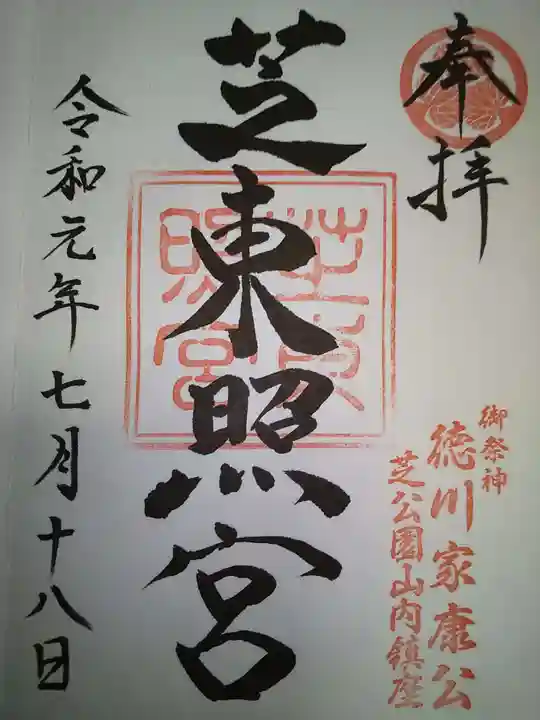 奉拝
御祭神
徳川家康公
芝公園山内鎮座
芝東照宮
芝東照宮
令和元年七月十八日